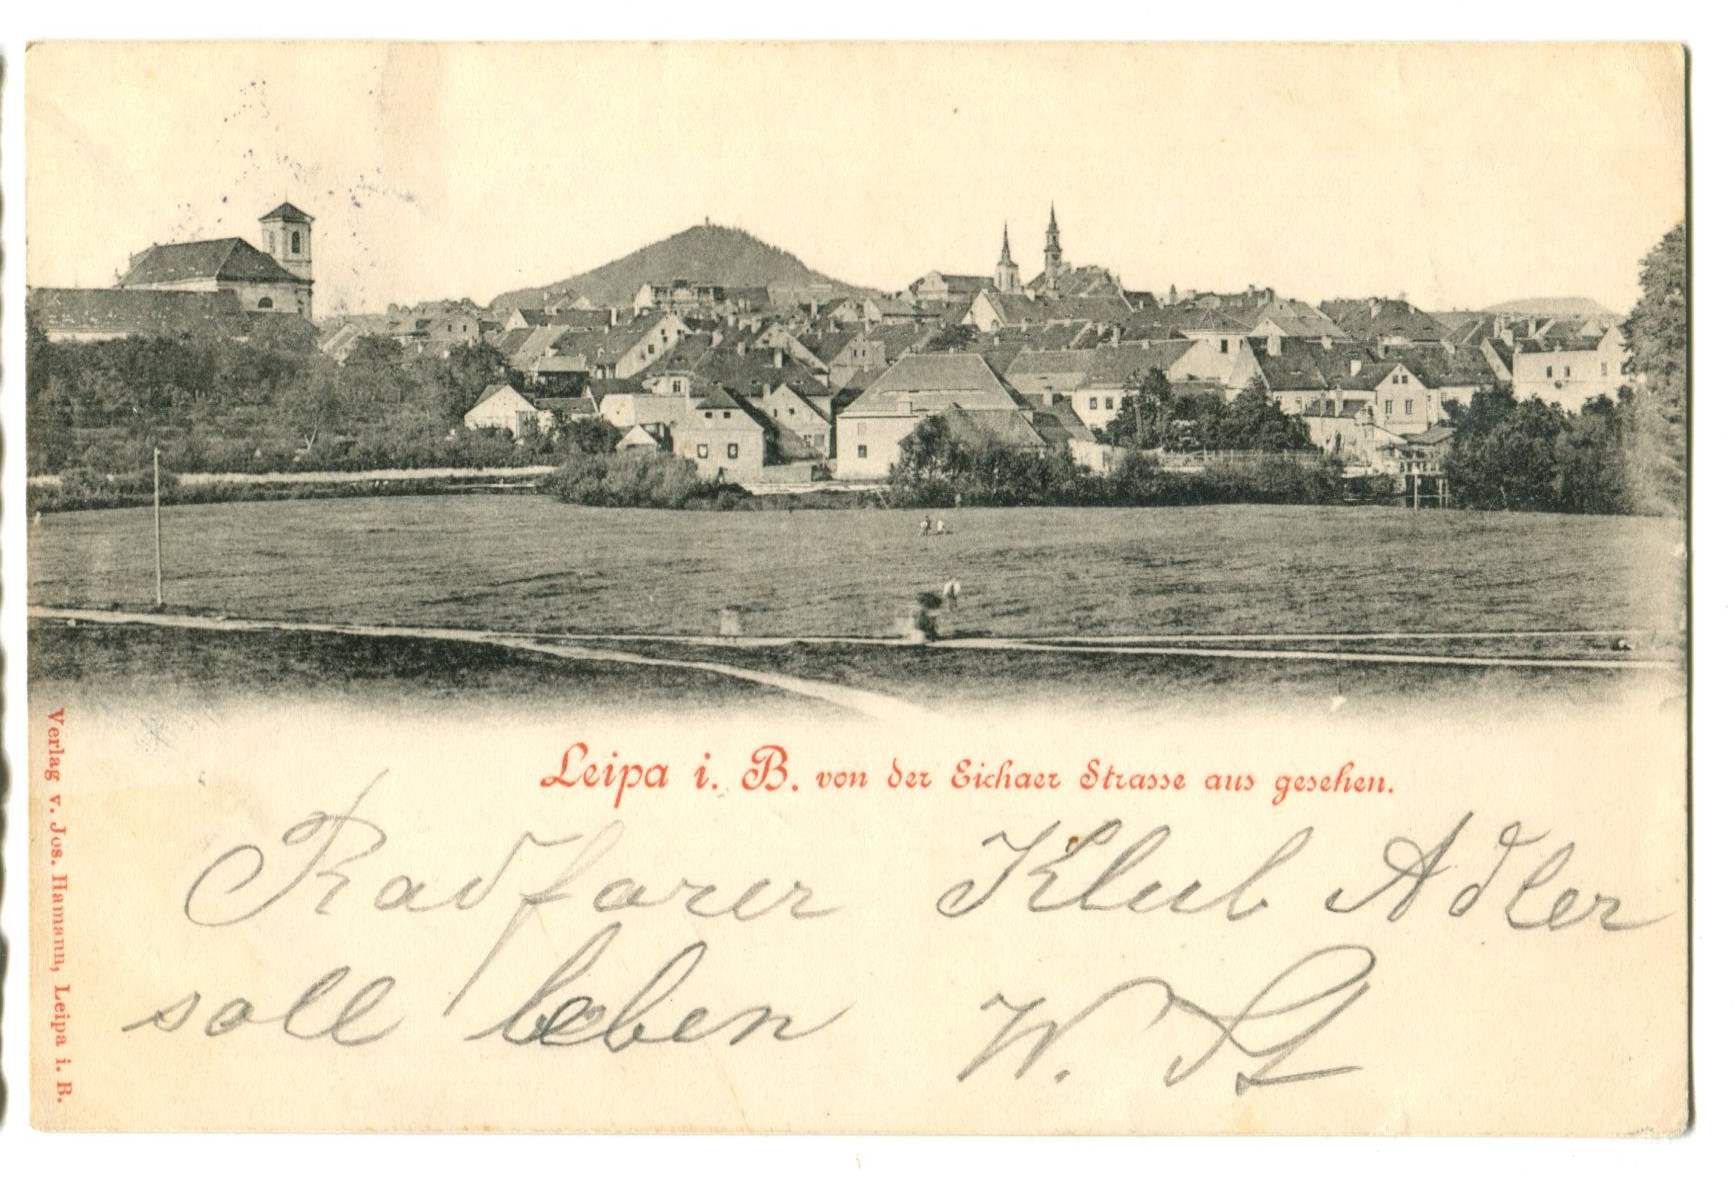 Leipa i. B. von der Eichaer Strasse aus gesehen.
Radfarer Klub Adler
soll leben
W.
Verlag v. Jos. Hamann, Leipa i. B.